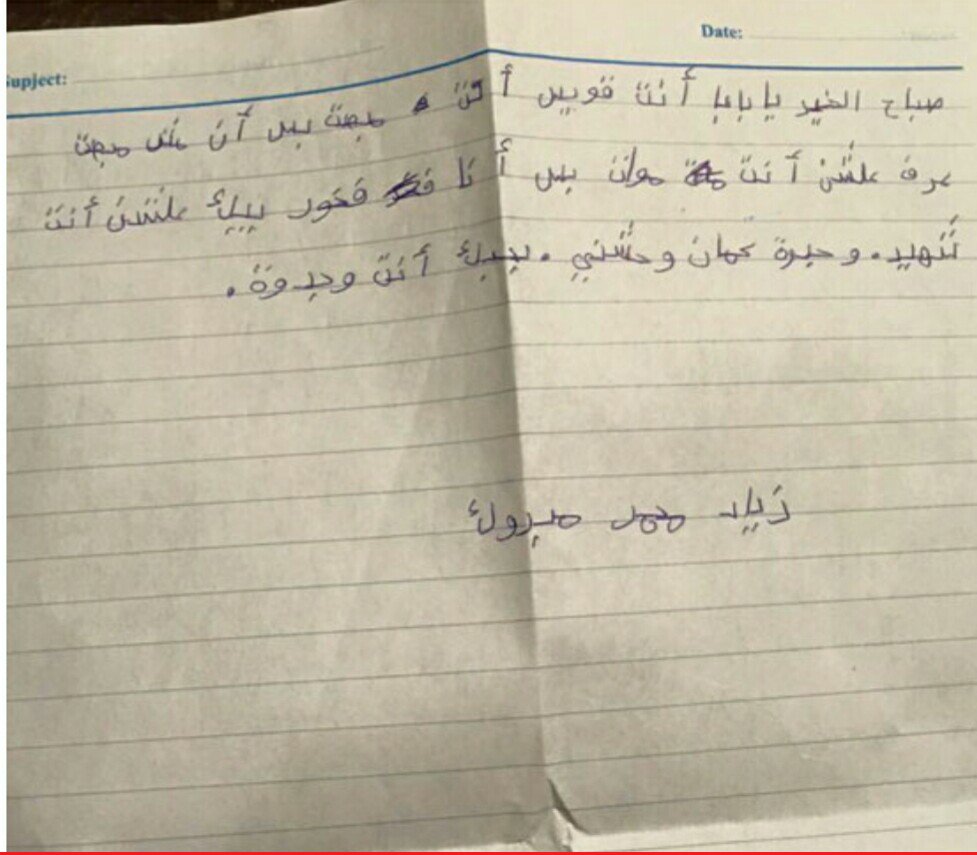 Date:
Supject:
صباح الخير يا بابا أنت قويس أنت مبصت بس أن مش مبصت
عرف علشن أنت موات بس أنا فخور بيك علشن أنت
شهيد. و حبرة كمان وحشني. بحبك أنت وجدوة.
زياد محمد مبروك